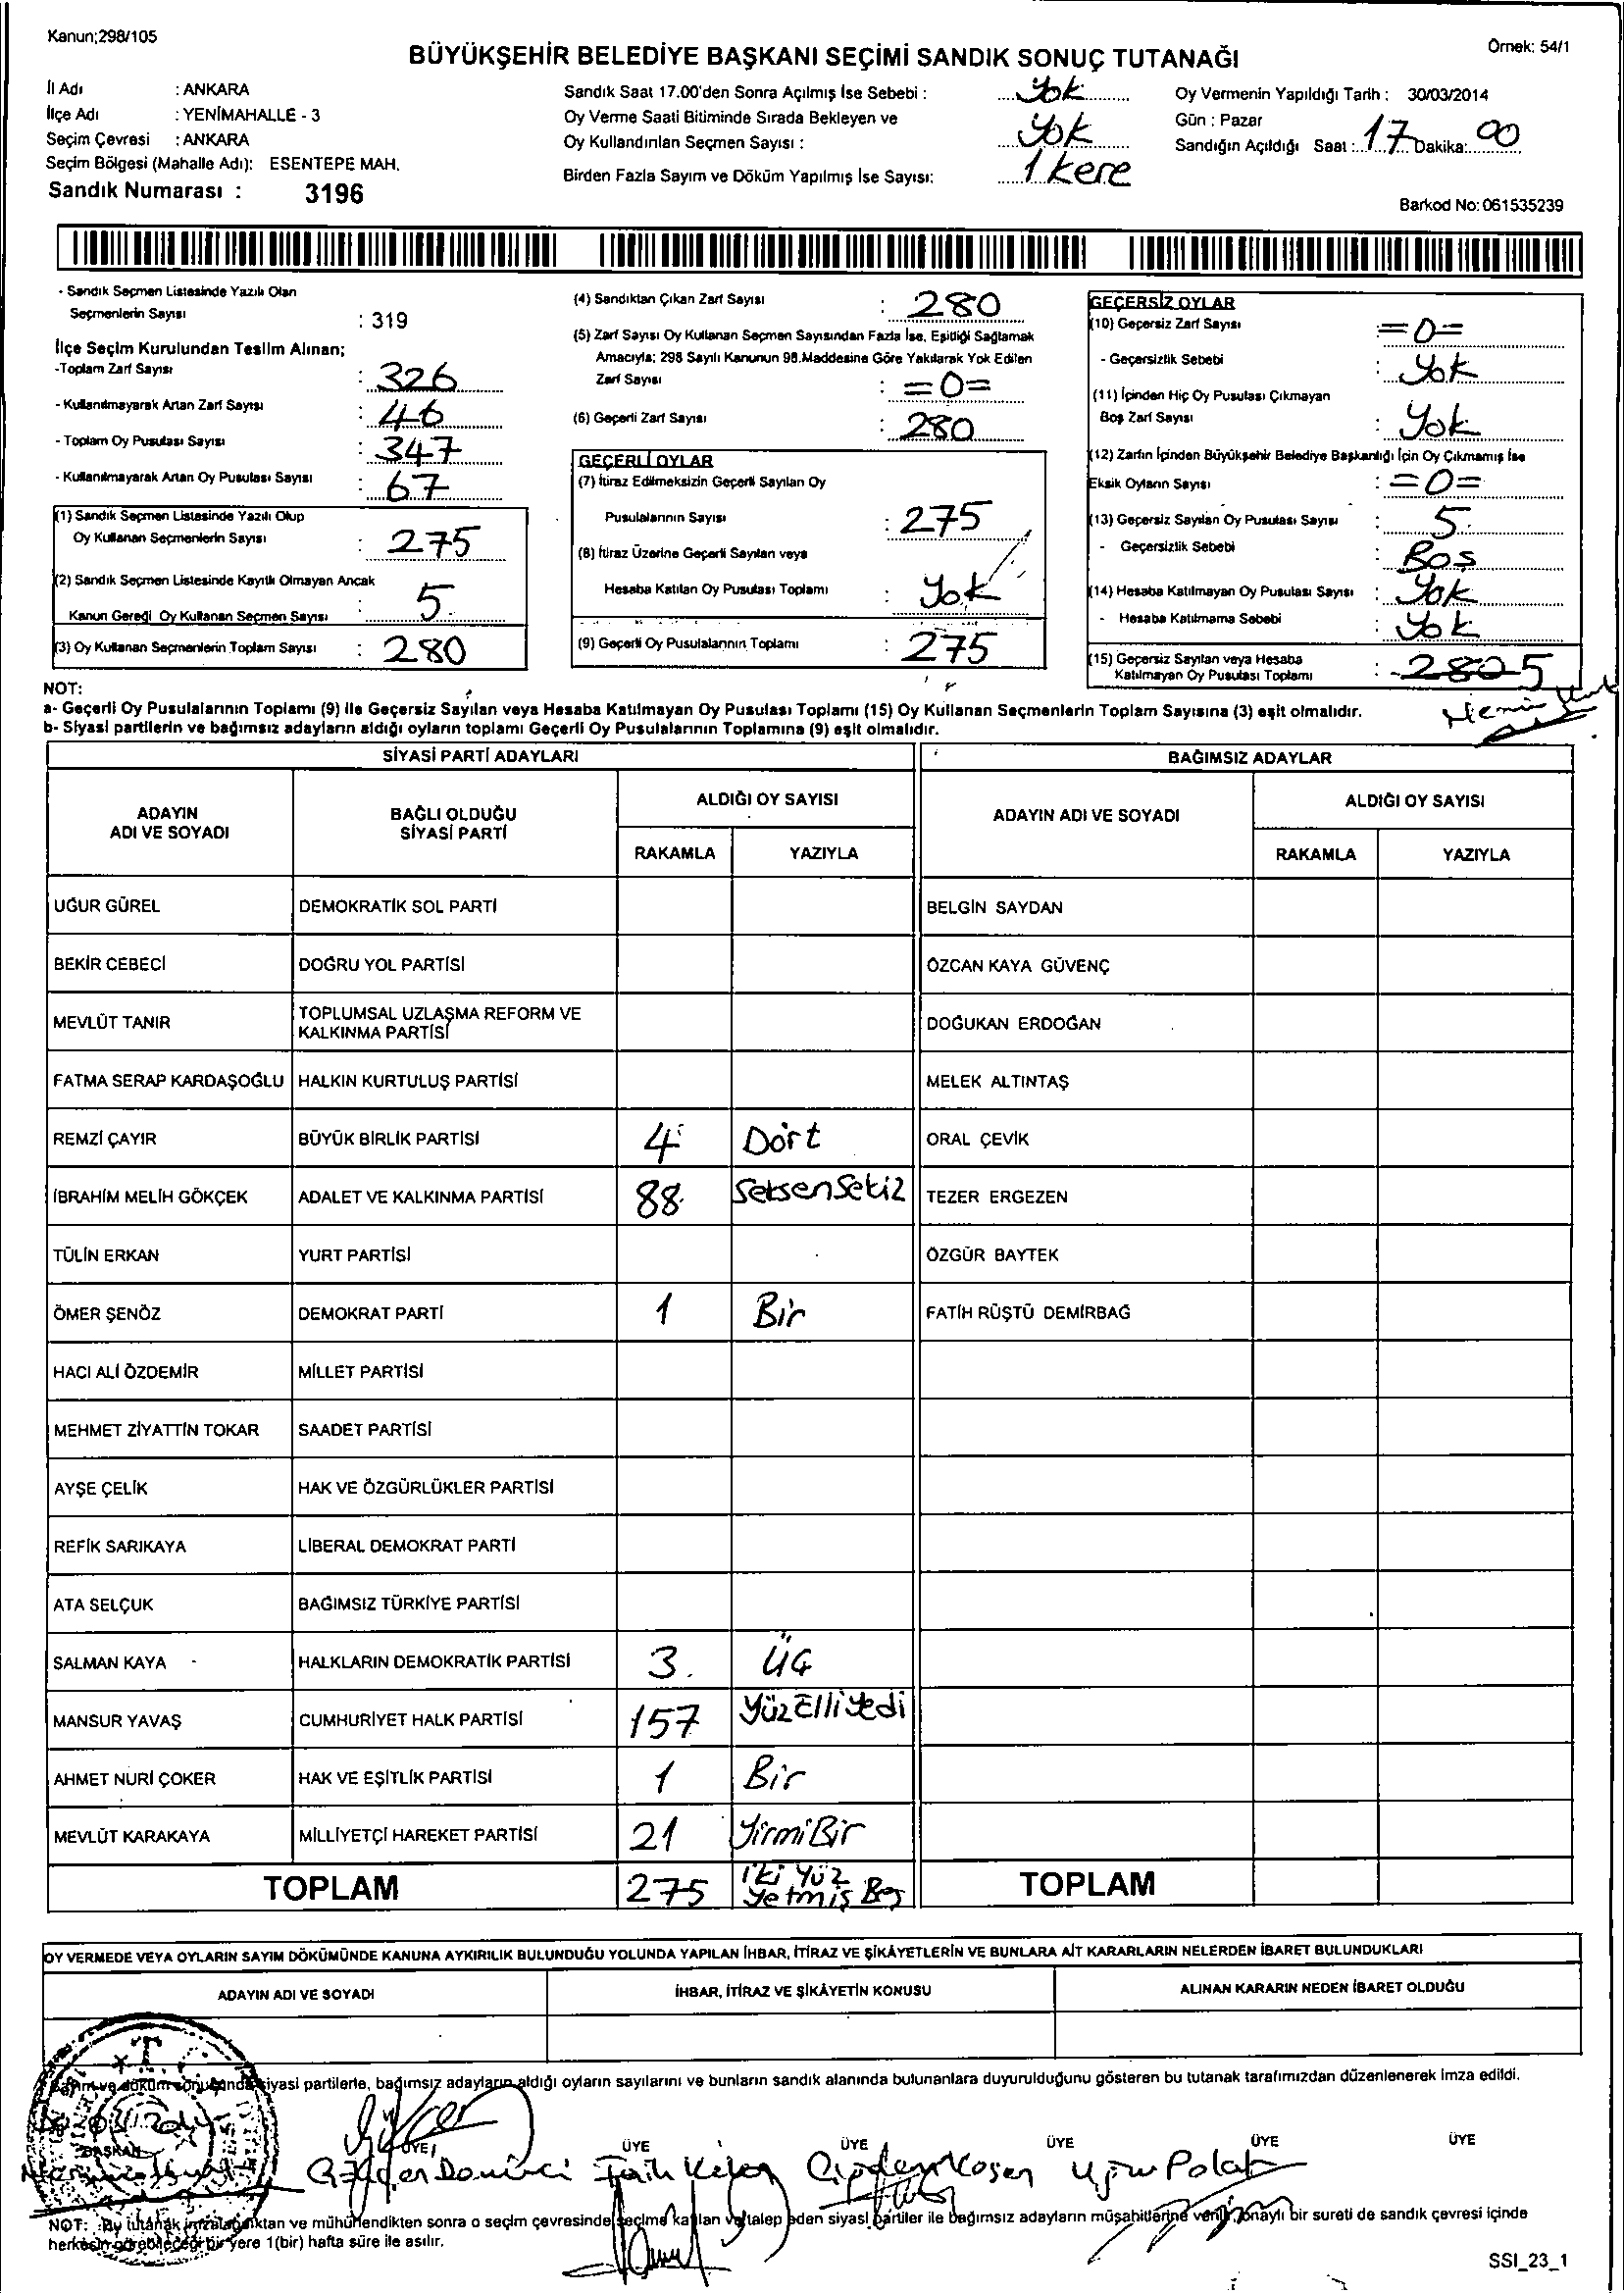 Kanun;298/105
Örnek: 54/1
BÜYÜKŞEHİR BELEDİYE BAŞKANI SEÇİMİ SANDIK SONUÇ TUTANAĞI
İl Adı : ANKARA
İlçe Adı : YENİMAHALLE - 3
Seçim Çevresi : ANKARA
Seçim Bölgesi (Mahalle Adı): ESENTEPE MAH.
Sandık Numarası : 3196
Sandık Saat 17.00'den Sonra Açılmış İse Sebebi : Yok
Oy Verme Saati Bitiminde Sırada Bekleyen ve
Oy Kullandırılan Seçmen Sayısı : Yok
Birden Fazla Sayım ve Döküm Yapılmış İse Sayısı: 1 kere
Oy Vermenin Yapıldığı Tarih : 30/03/2014
Gün : Pazar
Sandığın Açıldığı Saat : 17 Dakika: 00
Barkod No: 061535239
- Sandık Seçmen Listesinde Yazılı Olan
Seçmenlerin Sayısı : 319
İlçe Seçim Kurulundan Teslim Alınan;
-Toplam Zarf Sayısı : 326
- Kullanılmayarak Artan Zarf Sayısı : 46
- Toplam Oy Pusulası Sayısı : 347
- Kullanılmayarak Artan Oy Pusulası Sayısı : 67
(1) Sandık Seçmen Listesinde Yazılı Olup
Oy Kullanan Seçmenlerin Sayısı : 275
(2) Sandık Seçmen Listesinde Kayıtlı Olmayan Ancak
Kanun Gereği Oy Kullanan Seçmen Sayısı : 5
(3) Oy Kullanan Seçmenlerin Toplam Sayısı : 280
(4) Sandıktan Çıkan Zarf Sayısı : 280
(5) Zarf Sayısı Oy Kullanan Seçmen Sayısından Fazla İse, Eşitliği Sağlamak
Amacıyla; 298 Sayılı Kanunun 98.Maddesine Göre Yakılarak Yok Edilen
Zarf Sayısı : =0=
(6) Geçerli Zarf Sayısı : 280
GEÇERLİ OYLAR
(7) İtiraz Edilmeksizin Geçerli Sayılan Oy
Pusulalarının Sayısı : 275
(8) İtiraz Üzerine Geçerli Sayılan veya
Hesaba Katılan Oy Pusulası Toplamı : Yok
(9) Geçerli Oy Pusulalarının Toplamı : 275
GEÇERSİZ OYLAR
(10) Geçersiz Zarf Sayısı =0=
- Geçersizlik Sebebi : Yok
(11) İçinden Hiç Oy Pusulası Çıkmayan
Boş Zarf Sayısı : Yok
(12) Zarfın İçinden Büyükşehir Belediye Başkanlığı İçin Oy Çıkmamış İse
Eksik Oyların Sayısı : =0=
(13) Geçersiz Sayılan Oy Pusulası Sayısı : 5
- Geçersizlik Sebebi : Boş
(14) Hesaba Katılmayan Oy Pusulası Sayısı : Yok
- Hesaba Katılmama Sebebi : Yok
(15) Geçersiz Sayılan veya Hesaba
Katılmayan Oy Pusulası Toplamı : 280 5
NOT:
a- Geçerli Oy Pusulalarının Toplamı (9) ile Geçersiz Sayılan veya Hesaba Katılmayan Oy Pusulası Toplamı (15) Oy Kullanan Seçmenlerin Toplam Sayısına (3) eşit olmalıdır.
b- Siyasi partilerin ve bağımsız adayların aldığı oyların toplamı Geçerli Oy Pusulalarının Toplamına (9) eşit olmalıdır.
SİYASİ PARTİ ADAYLARI
BAĞIMSIZ ADAYLAR
ADAYIN
ADI VE SOYADI
BAĞLI OLDUĞU
SİYASİ PARTİ
ALDIĞI OY SAYISI
RAKAMLA YAZIYLA
ADAYIN ADI VE SOYADI
ALDIĞI OY SAYISI
RAKAMLA YAZIYLA
UĞUR GÜREL DEMOKRATİK SOL PARTİ BELGİN SAYDAN
BEKİR CEBECİ DOĞRU YOL PARTİSİ ÖZCAN KAYA GÜVENÇ
MEVLÜT TANIR TOPLUMSAL UZLAŞMA REFORM VE
KALKINMA PARTİSİ DOĞUKAN ERDOĞAN
FATMA SERAP KARDAŞOĞLU HALKIN KURTULUŞ PARTİSİ MELEK ALTINTAŞ
REMZİ ÇAYIR BÜYÜK BİRLİK PARTİSİ 4 Dört ORAL ÇEVİK
İBRAHİM MELİH GÖKÇEK ADALET VE KALKINMA PARTİSİ 88 SeksenSekiz TEZER ERGEZEN
TÜLİN ERKAN YURT PARTİSİ ÖZGÜR BAYTEK
ÖMER ŞENÖZ DEMOKRAT PARTİ 1 Bir FATİH RÜŞTÜ DEMİRBAĞ
HACI ALİ ÖZDEMİR MİLLET PARTİSİ
MEHMET ZİYATTİN TOKAR SAADET PARTİSİ
AYŞE ÇELİK HAK VE ÖZGÜRLÜKLER PARTİSİ
REFİK SARIKAYA LİBERAL DEMOKRAT PARTİ
ATA SELÇUK BAĞIMSIZ TÜRKİYE PARTİSİ
SALMAN KAYA - HALKLARIN DEMOKRATİK PARTİSİ 3 Üç
MANSUR YAVAŞ CUMHURİYET HALK PARTİSİ 157 YüzElliYedi
AHMET NURİ ÇOKER HAK VE EŞİTLİK PARTİSİ 1 Bir
MEVLÜT KARAKAYA MİLLİYETÇİ HAREKET PARTİSİ 21 YirmiBir
TOPLAM 275 İki Yüz
Yetmiş Beş
TOPLAM
OY VERMEDE VEYA OYLARIN SAYIM DÖKÜMÜNDE KANUNA AYKIRILIK BULUNDUĞU YOLUNDA YAPILAN İHBAR, İTİRAZ VE ŞİKÂYETLERİN VE BUNLARA AİT KARARLARIN NELERDEN İBARET BULUNDUKLARI
ADAYIN ADI VE SOYADI
İHBAR, İTİRAZ VE ŞİKÂYETİN KONUSU
ALINAN KARARIN NEDEN İBARET OLDUĞU
Sayım ve döküm sonucunda siyasi partilerle, bağımsız adayların aldığı oyların sayılarını ve bunların sandık alanında bulunanlara duyurulduğunu gösteren bu tutanak tarafımızdan düzenlenerek imza edildi.
BAŞKAN ÜYE ÜYE ÜYE ÜYE ÜYE ÜYE
Uğur Polat
NOT: Bu tutanak imzalandıktan ve mühürlendikten sonra o seçim çevresinde seçime katılan ve talep eden siyasi partiler ile bağımsız adayların müşahitlerine verilir, onaylı bir sureti de sandık çevresi içinde
herkesin görebileceği bir yere 1(bir) hafta süre ile asılır.
SSI_23_1